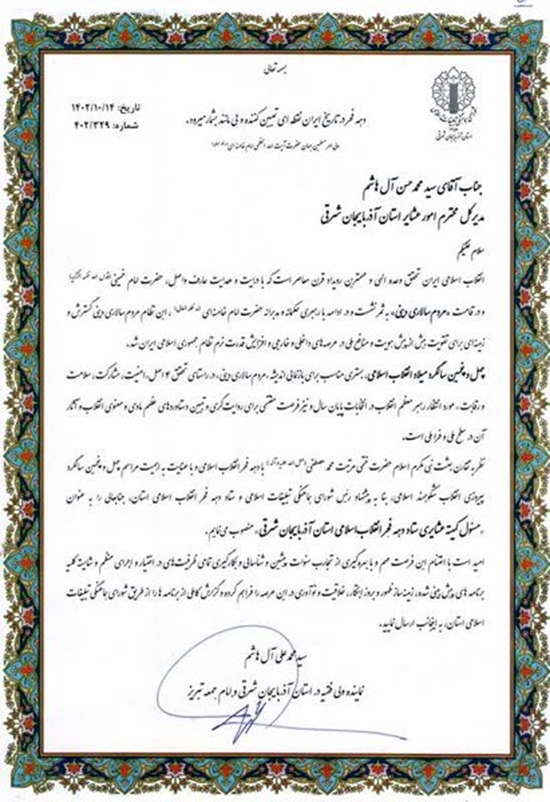 بسمه تعالی
تاریخ: ۱۴۰۲/۱۰/۱۴
شماره: ۴۰۲/۳۲۹
استان آذربایجان شرقی
دهه فجر در تاریخ ایران نقطه ای تعیین کننده و بی مانند بشمار میرود.
ولی امر مسلمین جهان حضرت آیت الله العظمی امام خامنه ای
جناب آقای سید محمد حسن آل هاشم
مدیرکل محترم امور عشایر استان آذربایجان شرقی
سلام علیکم
انقلاب اسلامی ایران تحقق وعده الهی و مهمترین رویداد قرن معاصر است که با درایت و هدایت عارف واصل، حضرت امام خمینی
و در قامت «مردم سالاری دینی» به ثمر نشست و در ادامه با رهبری حکیمانه و مدبرانه حضرت امام خامنه ای (مدظله العالی)، این نظام مردم سالاری دینی گسترش و
زمینه ای برای تقویت بیش از پیش هویت و منافع ملی در عرصه های داخلی و خارجی و افزایش قدرت نرم نظام جمهوری اسلامی ایران شد.
چهل و پنجمین سالگرد میلاد انقلاب اسلامی، بستری مناسب برای بازخوانی اندیشه مردم سالاری دینی، در راستای تحقق ۴ اصل، امنیت، مشارکت، سلامت
و رقابت، مورد انتظار رهبر معظم انقلاب در انتخابات پایان سال و نیز فرصت مغتنمی برای روایت گری و تبیین دستاوردهای عظیم مادی و معنوی انقلاب و آثار
آن در سطح ملی و فراملی است.
نظر به تقارن بعثت نبی مکرم اسلام حضرت ختمی مرتبت محمد مصطفی (صلی الله علیه و آله) با دهه فجر انقلاب اسلامی و با عنایت به اهمیت مراسم چهل و پنجمین سالگرد
پیروزی انقلاب شکوهمند اسلامی، بنا به پیشنهاد رئیس شورای هماهنگی تبلیغات اسلامی و ستاد دهه فجر انقلاب اسلامی استان، جنابعالی را به عنوان
«مسئول کمیته عشایری ستاد دهه فجر انقلاب اسلامی استان آذربایجان شرقی» منصوب می نمایم.
امید است با اغتنام این فرصت مهم و با بهره گیری از تجارب سنوات پیشین و شناسایی و بکارگیری تمامی ظرفیت های در اختیار و اجرای منظم و شایسته کلیه
برنامه های پیش بینی شده، زمینه ساز ظهور و بروز ابتکار، خلاقیت و نوآوری در این عرصه را فراهم کرده و گزارش کاملی از برنامه ها را از طریق شورای هماهنگی تبلیغات
اسلامی استان، به اینجانب ارسال نمایید.
سید محمد علی آل هاشم
نماینده ولی فقیه در استان آذربایجان شرقی و امام جمعه تبریز